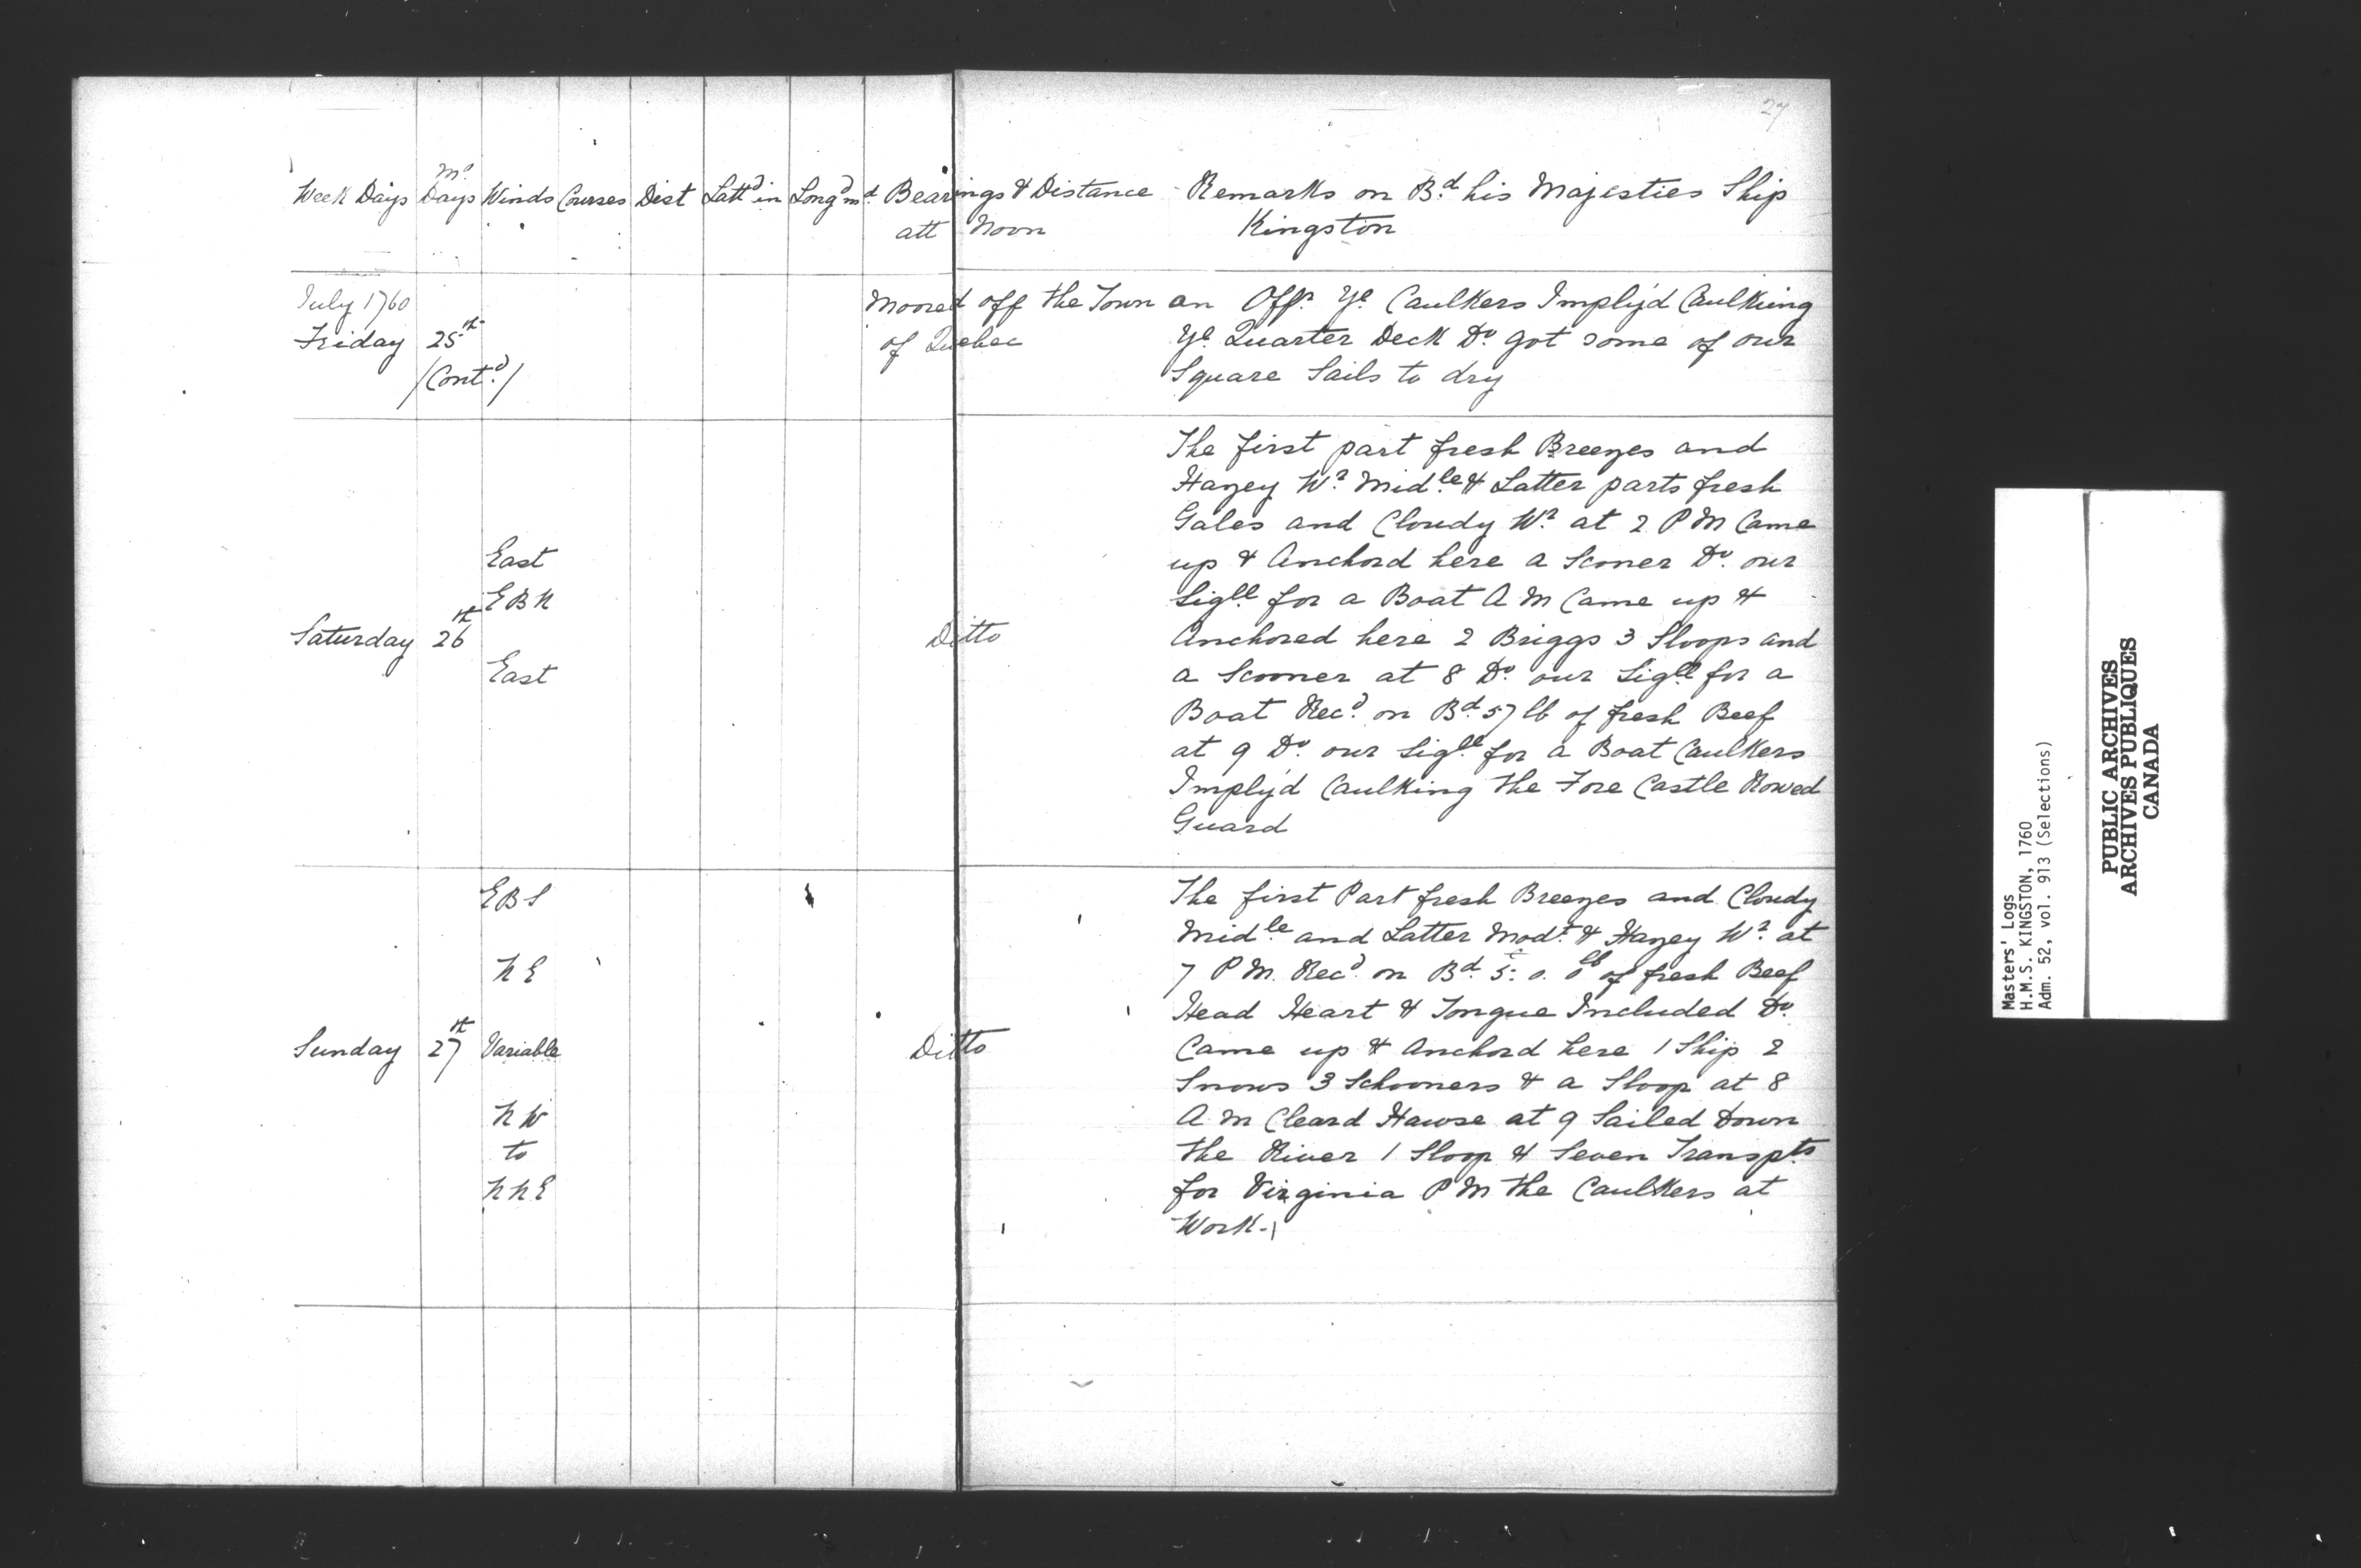 27
Week Days Mo Days Winds Courses Dist Lattd in Longd md Bearings & Distance att Noon
Remarks on Bd his Majesties Ship
Kingston
July 1760
Friday 25th
(Contd)
Moored off the Town
of Quebec
an Offr Ye Caulkers Imply'd Caulking
Ye Quarter Deck Do got some of our
Square Sails to dry
Saturday 26th
East
EBN
East
Ditto
The first part fresh Breezes and
Hazey Wr Midle & Latter parts fresh
Gales and Cloudy Wr at 2 PM Came
up & Anchord here a Sconer Do our
Sigll for a Boat AM Came up &
Anchored here 2 Briggs 3 Sloops and
a Scooner at 8 Do our Sigll for a
Boat Recd on Bd 57 lb of fresh Beef
at 9 Do our Sigll for a Boat Caulkers
Imply'd Caulking the Fore Castle Rowed
Guard
Sunday 27th
EBS
NE
Variable
NW
to
NNE
Ditto
The first Part fresh Breezes and Cloudy
Midle and Latter Modt & Hazey Wr at
7 PM. Recd on Bd 5c: 0. 0lb of fresh Beef
Head Heart & Tongue Included Do
Came up & Anchord here 1 Ship 2
Snows 3 Schooners & a Sloop at 8
AM Cleard Hawse at 9 Sailed Down
the River 1 Sloop & Seven Transpts
for Virginia PM the Caulkers at
Work-
Masters' Logs
H.M.S. KINGSTON, 1760
Adm. 52, vol. 913 (Selections)
PUBLIC ARCHIVES
ARCHIVES PUBLIQUES
CANADA